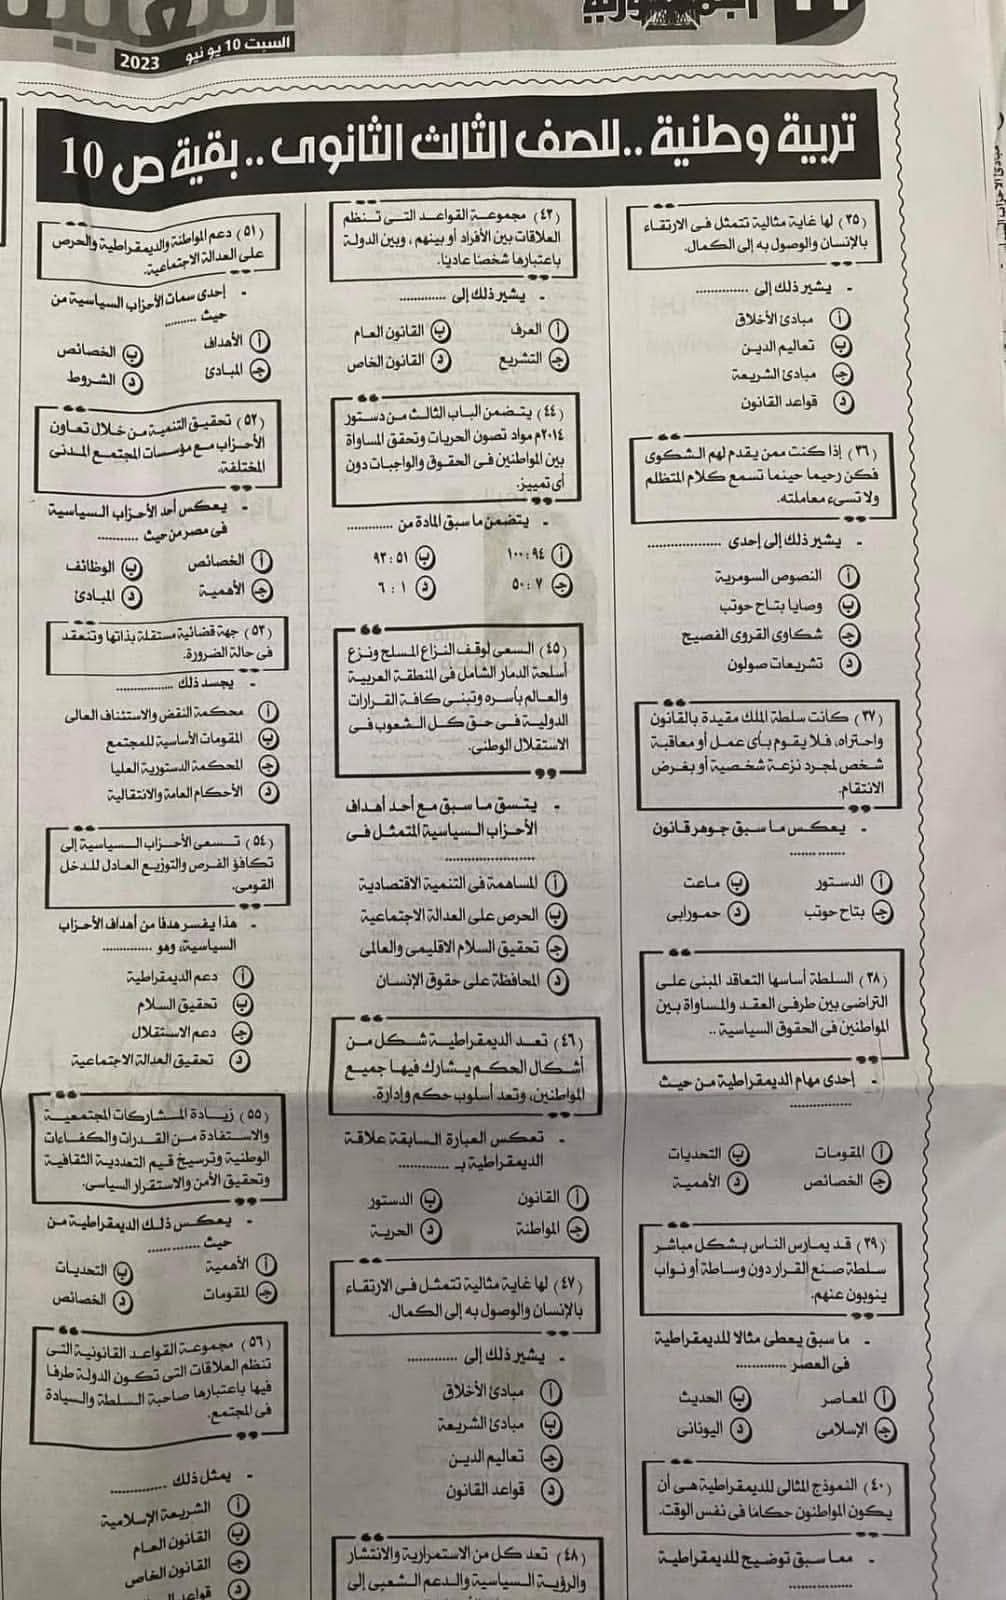 السبت 10 يونيو 2023
تربية وطنية .. للصف الثالث الثانوى .. بقية ص 10
(٣٥) لها غاية مثالية تتمثل فى الارتقاء
بالإنسان والوصول به إلى الكمال.
- يشير ذلك إلى ..............
أ مبادئ الأخلاق
ب تعاليم الدين
جـ مبادئ الشريعة
د قواعد القانون
(٣٦) إذا كنت ممن يقدم لهم الشكوى
فكن رحيما حينما تسمع كلام المتظلم
ولا تسىء معاملته.
- يشير ذلك إلى إحدى ..................
أ النصوص السومرية
ب وصايا بتاح حوتب
جـ شكاوى القروى الفصيح
د تشريعات صولون
(٣٧) كانت سلطة الملك مقيدة بالقانون
واحترامه، فلا يقوم بأى عمل أو معاقبة
شخص لمجرد نزعة شخصية أو بغرض
الانتقام.
- يعكس ما سبق جوهر قانون
..............
أ الدستور ب ماعت
جـ بتاح حوتب د حمورابى
(٣٨) السلطة أساسها التعاقد المبنى على
التراضى بين طرفى العقد والمساواة بين
المواطنين فى الحقوق السياسية ..
- إحدى مهام الديمقراطية من حيث
..............
أ المقومات ب التحديات
جـ الخصائص د الأهمية
(٣٩) قد يمارس الناس بشكل مباشر
سلطة صنع القرار دون وساطة أو نواب
ينوبون عنهم.
- ما سبق يعطى مثالا للديمقراطية
فى العصر ..............
أ المعاصر ب الحديث
جـ الإسلامى د اليونانى
(٤٠) النموذج المثالى للديمقراطية هى أن
يكون المواطنون حكاما فى نفس الوقت.
- مما سبق توضيح للديمقراطية
..............
(٤٣) مجموعة القواعد التى تنظم
العلاقات بين الأفراد أو بينهم ، وبين الدولة
باعتبارها شخصا عاديا.
- يشير ذلك إلى ..............
أ العرف ب القانون العام
جـ التشريع د القانون الخاص
(٤٤) يتضمن الباب الثالث من دستور
٢٠١٤م مواد تصون الحريات وتحقق المساواة
بين المواطنين فى الحقوق والواجبات دون
أى تمييز.
- يتضمن ما سبق المادة من ..............
أ ٩٤ : ١٠٠ ب ٥١ : ٩٣
جـ ٧ : ٥٠ د ١ : ٦
(٤٥) السعى لوقف النزاع المسلح ونزع
أسلحة الدمار الشامل فى المنطقة العربية
والعالم بأسره وتبنى كافة القرارات
الدولية فى حق كل الشعوب فى
الاستقلال الوطنى.
- يتسق ما سبق مع أحد أهداف
الأحزاب السياسية المتمثل فى
..................
أ المساهمة فى التنمية الاقتصادية
ب الحرص على العدالة الاجتماعية
جـ تحقيق السلام الاقليمى والعالمى
د المحافظة على حقوق الإنسان
(٤٦) تعد الديمقراطية شكل من
أشكال الحكم يشارك فيها جميع
المواطنين، وتعد أسلوب حكم وإدارة.
- تعكس العبارة السابقة علاقة
الديمقراطية بـ ..............
أ القانون ب الدستور
جـ المواطنة د الحرية
(٤٧) لها غاية مثالية تتمثل فى الارتقاء
بالإنسان والوصول به إلى الكمال.
- يشير ذلك إلى ..............
أ مبادئ الأخلاق
ب مبادئ الشريعة
جـ تعاليم الدين
د قواعد القانون
(٤٨) تعد كل من الاستمرارية والانتشار
والرؤية السياسية والدعم الشعبى إلى
(٥١) دعم المواطنة والديمقراطية والحرص
على العدالة الاجتماعية.
- إحدى سمات الأحزاب السياسية من
حيث ..........
أ الأهداف ب الخصائص
جـ المبادئ د الشروط
(٥٢) تحقيق التنمية من خلال تعاون
الأحزاب مع مؤسسات المجتمع المدنى
المختلفة.
- يعكس أحد الأحزاب السياسية
فى مصر من حيث ..............
أ الخصائص ب الوظائف
جـ الأهمية د المبادئ
(٥٣) جهة قضائية مستقلة بذاتها وتنعقد
فى حالة الضرورة.
- يجسد ذلك ..............
أ محكمة النقض والاستئناف العالى
ب المقومات الأساسية للمجتمع
جـ المحكمة الدستورية العليا
د الأحكام العامة والانتقالية
(٥٤) تسعى الأحزاب السياسية إلى
تكافؤ الفرص والتوزيع العادل للدخل
القومى.
- هذا يفسر هدفا من أهداف الأحزاب
السياسية، وهو ..............
أ دعم الديمقراطية
ب تحقيق السلام
جـ دعم الاستقلال
د تحقيق العدالة الاجتماعية
(٥٥) زيادة المشاركات المجتمعية
والاستفادة من القدرات والكفاءات
الوطنية وترسيخ قيم التعددية الثقافية
وتحقيق الأمن والاستقرار السياسى.
- يعكس ذلك الديمقراطية من
حيث ..............
أ الأهمية ب التحديات
جـ المقومات د الخصائص
(٥٦) مجموعة القواعد القانونية التى
تنظم العلاقات التى تكون الدولة طرفا
فيها باعتبارها صاحبة السلطة والسيادة
فى المجتمع.
- يمثل ذلك ..............
أ الشريعة الإسلامية
ب القانون العام
جـ القانون الخاص
د قواعد